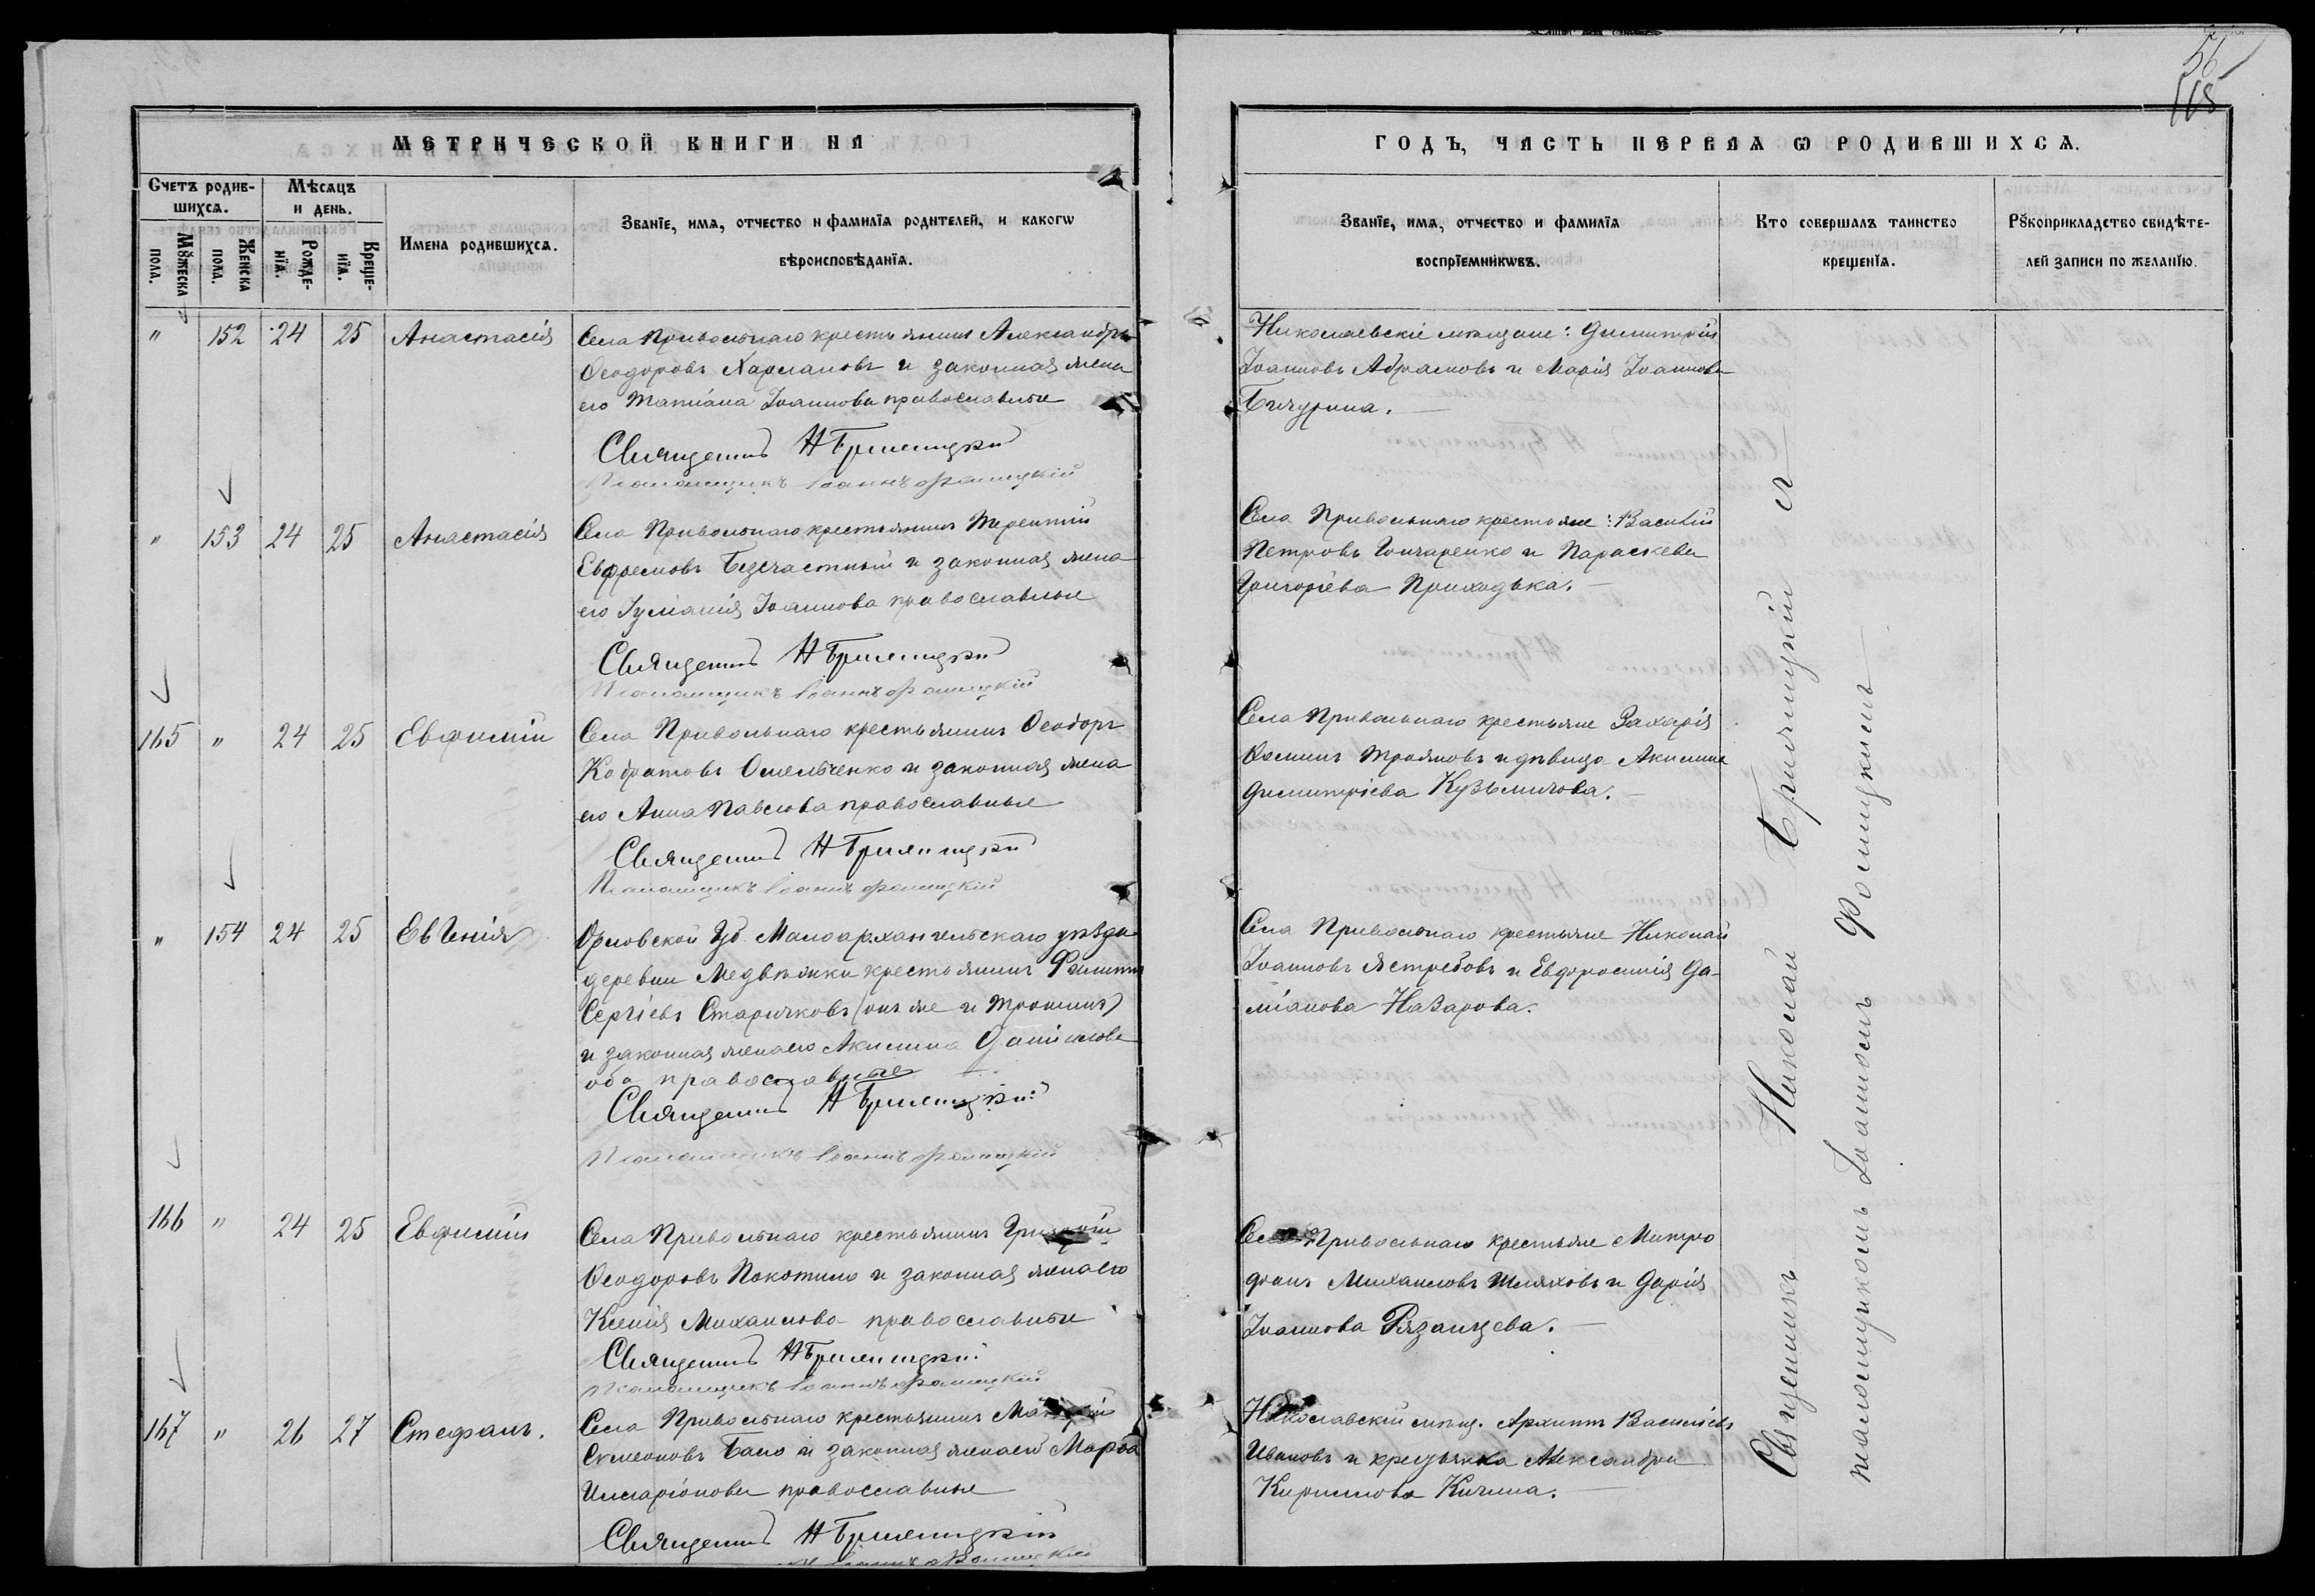 56
МЕТРИЧЕСКОЙ КНИГИ НА
ГОДЪ, ЧАСТЬ ПЕРВАЯ Ѡ РОДИВШИХСѦ.
Счетъ родив-
шихсѧ.
Мѣсѧцъ
и день.
Мꙋжеска
пола.
Женска
пола.
Рожде-
нїѧ.
Креще-
нїѧ.
Имена родившихсѧ.
Званїе, имѧ, отчество и фамилїѧ родителей, и какогѡ
вѣроисповѣданїѧ.
Званїе, имѧ, отчество и фамилїѧ
воспрїемникѡвъ.
Кто совершалъ таинство
крещенїѧ.
Рꙋкоприкладство свидѣте-
лей записи по желанїю.
" 152 24 25 Анастасія
Села Привольнаго крестьянинъ Александръ
Ѳеодоровъ Харлановъ и законная жена
его Татіана Іоаннова православные
Священникъ Н Бриллицкій
Псаломщикъ Іоаннъ Фомицкій
Николаевскіе мѣщане: Димитрій
Іоанновъ Абрамовъ и Марія Іоаннова
Бичурина.
" 153 24 25 Анастасія
Села Привольнаго крестьянинъ Терентій
Евфремовъ Безчастный и законная жена
его Іуліанія Іоаннова православные
Священникъ Н Бриллицкій
Псаломщикъ Іоаннъ Фомицкій
Села Привольнаго крестьяне: Василій
Петровъ Гончаренко и Параскева
Григоріева Приходька.
165 " 24 25 Евфимій
Села Привольнаго крестьянинъ Ѳеодоръ
Кодратовъ Омельченко и законная жена
его Анна Павлова православные
Священникъ Н Бриллицкій
Псаломщикъ Іоаннъ Фомицкій
Села Привольнаго крестьяне Захарія
Ѳоминъ Трояновъ и дѣвица Акилина
Димитріева Кузьмичова.
" 154 24 25 Евгенія
Орловской Губ. Малоархангельскаго уѣзда
деревни Медвѣжки крестьянинъ Филиппъ
Сергіевъ Старичковъ (онъ же и Трошинъ)
и законная жена его Акилина Даніилова
оба православные
Священникъ Н Бриллицкій
Псаломщикъ Іоаннъ Фомицкій
Села Привольнаго крестьяне Николай
Іоанновъ Ястребовъ и Евфросинія Да-
міанова Назарова.
166 " 24 25 Евфимій
Села Привольнаго крестьянинъ
Ѳеодоровъ Покотило и законная жена его
Ксенія Михаилова православные
Священникъ Н Бриллицкій
Псаломщикъ Іоаннъ Фомицкій
Села Привольнаго крестьяне Митро
фанъ Михаиловъ Шляховъ и Дарія
Іоаннова Рязанцева.
167 " 26 27 Стефанъ.
Села Привольнаго крестьянинъ
Симеоновъ Бало и законная жена его Марѳа
Илларіонова православные
Священникъ Н Бриллицкій
Іоаннъ Фомицкій
мѣщ. Архиппъ Василіевъ
Ивановъ и крестьянка Александра
Кириллова Кичина.
Священникъ Николай Бриллицкій съ
псаломщикомъ Іоанномъ Фомицкимъ